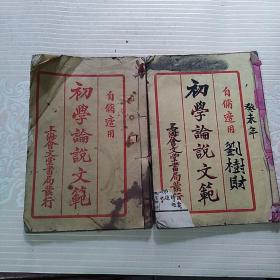 自脩適用
初學論說文範
上海會文堂書局發行
癸未年
自脩適用
劉樹財
初學論說文範
上海會文堂書局發行